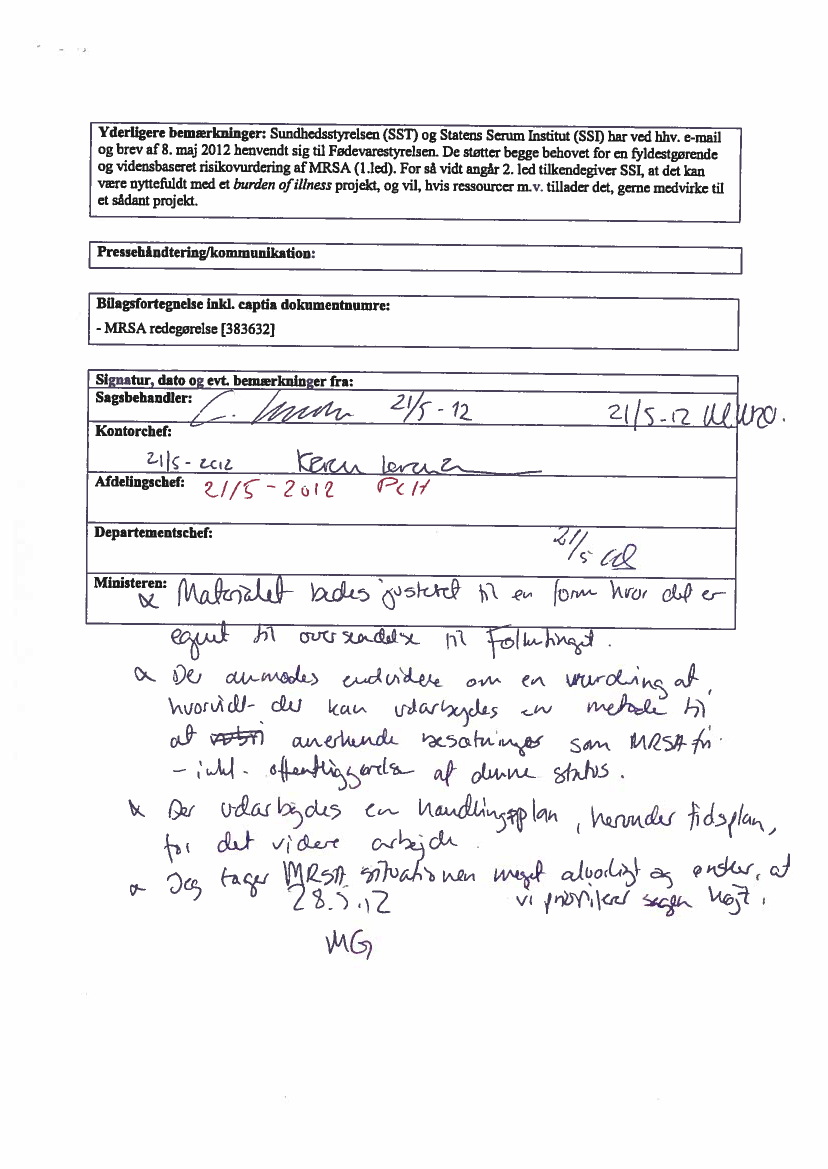 Yderligere bemærkninger: Sundhedsstyrelsen (SST) og Statens Serum Institut (SSI) har ved hhv. e-mail
og brev af 8. maj 2012 henvendt sig til Fødevarestyrelsen. De støtter begge behovet for en fyldestgørende
og vidensbaseret risikovurdering af MRSA (1.led). For så vidt angår 2. led tilkendegiver SSI, at det kan
være nyttefuldt med et burden of illness projekt, og vil, hvis ressourcer m.v. tillader det, gerne medvirke til
et sådant projekt.
Pressehåndtering/kommunikation:
Bilagsfortegnelse inkl. captia dokumentnumre:
- MRSA redegørelse [383632]
Signatur, dato og evt. bemærkninger fra:
Sagsbehandler: 21/5 - 12 21/5-12
Kontorchef:
21/5 - 2012
Afdelingschef: 21/5 - 2012 PCH
Departementschef: 21/5
Ministeren: Materialet bedes justeret til en form hvor det er
egnet til oversendelse til Folketinget.
Der anmodes endvidere om en vurdering af,
hvorvidt der kan udarbejdes en metode til
at anerkende besætninger som MRSA-fri
- inkl. offentliggørelse af denne status.
Der udarbejdes en handlingsplan, herunder tidsplan,
for det videre arbejde.
Jeg tager MRSA situationen meget alvorligt og ønsker, at
28.5.12 vi prioriterer sagen højt.
MG